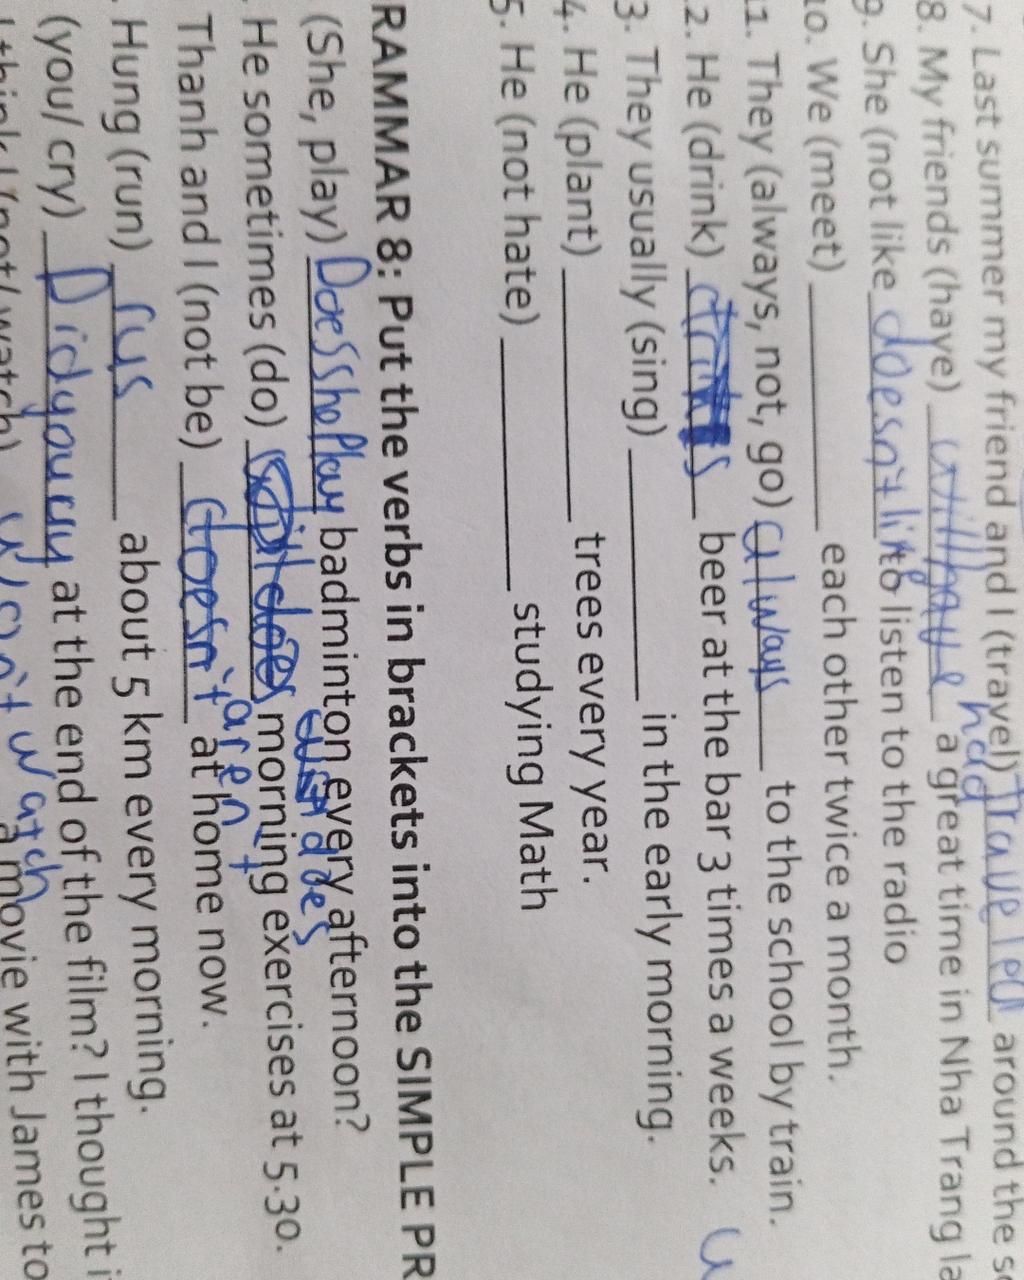 7. Last summer my friend and I (travel) Travel around the
8. My friends (have) will have had a great time in Nha Trang
9. She (not like doesn't to listen to the radio
10. We (meet) each other twice a month.
11. They (always, not, go) always to the school by train.
2. He (drink) beer at the bar 3 times a weeks.
3. They usually (sing) in the early morning.
4. He (plant) trees every year.
5. He (not hate) studying Math
RAMMAR 8: Put the verbs in brackets into the SIMPLE PR
(She, play) Does sho Play badminton every afternoon?
He sometimes (do) does morning exercises at 5.30.
Thanh and I (not be) doesn't aren't at home now.
Hung (run) about 5 km every morning.
(you/ cry) Did you cry at the end of the film? I thought i
I think I (not/ watch) watch a movie with James to